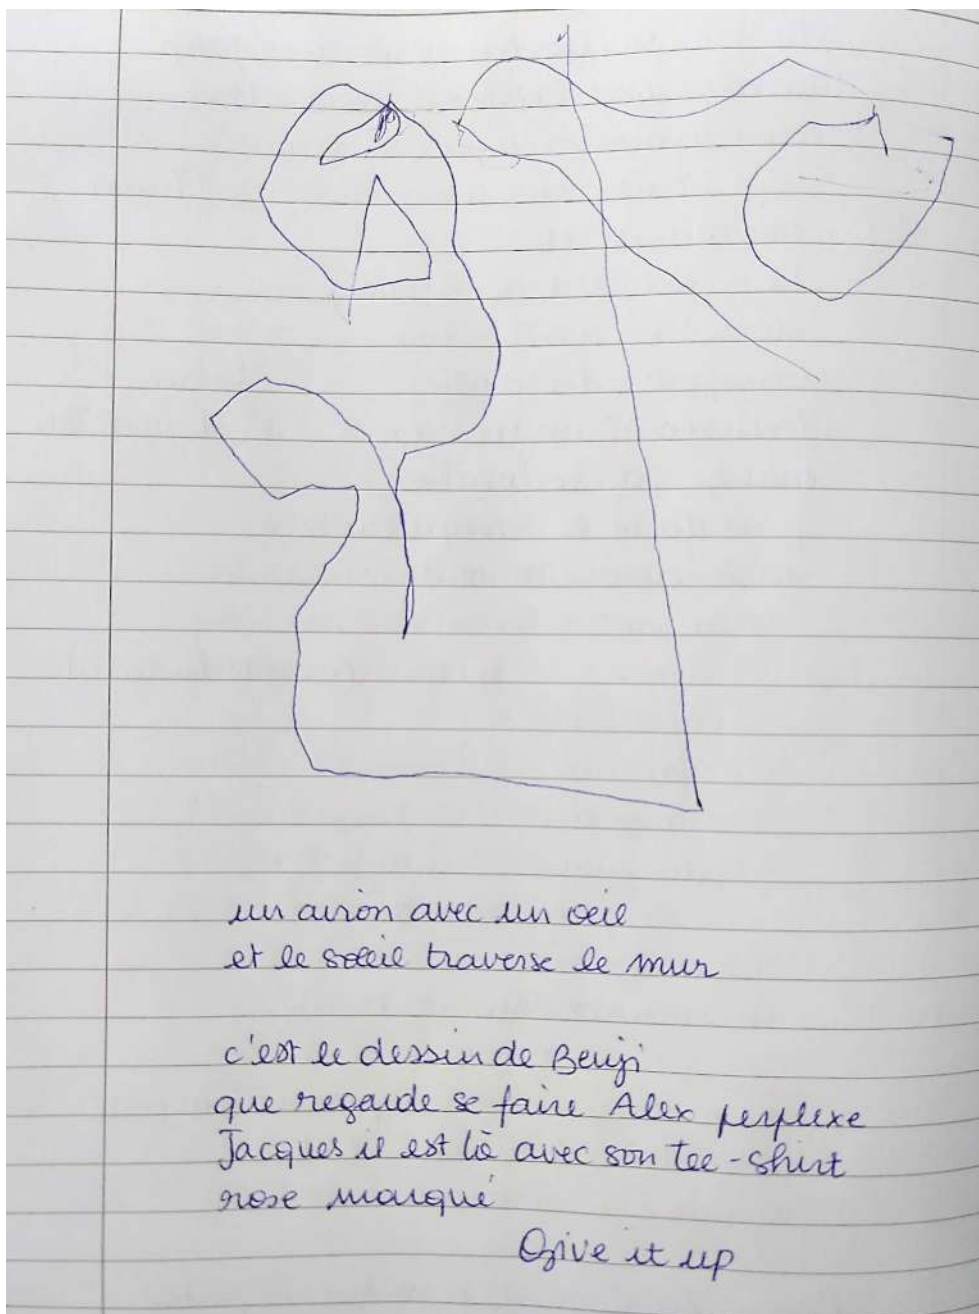 un avion avec un œil
et le soleil traverse le mur
c'est le dessin de Benji
que regarde se faire Alex perplexe
Jacques il est là avec son tee-shirt
rose marqué
Give it up